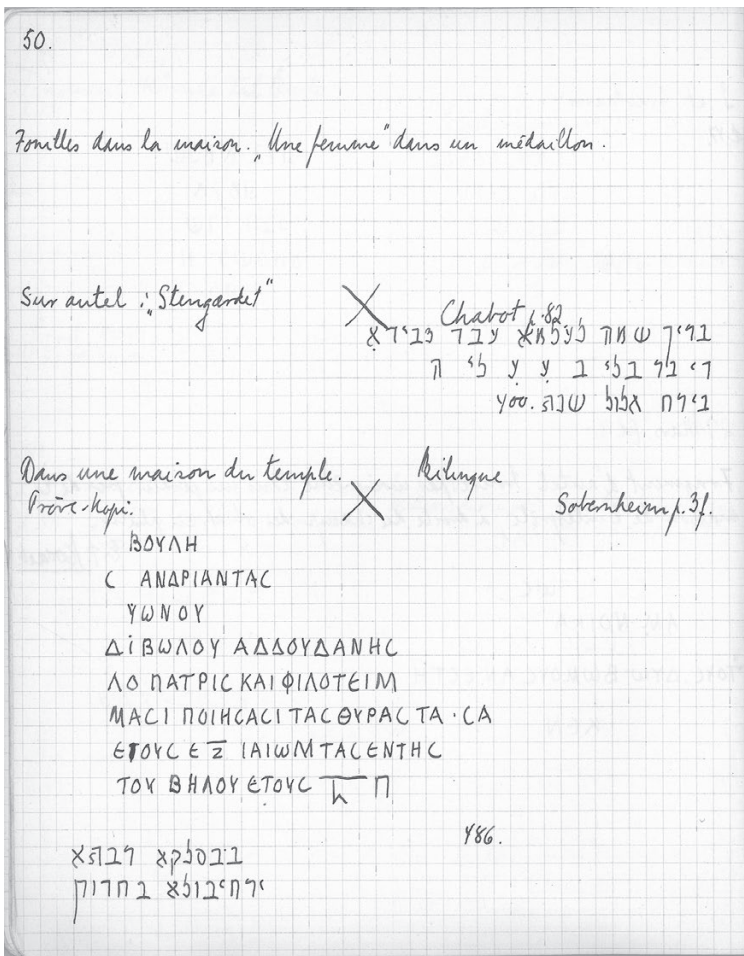 50.
Fouilles dans la maison. „Une femme" dans un médaillon.
Sur autel : „Stengærdet"
Chabot p. 82
בריך שמה לעלמא עבד
די בר בלי ב ע ע לי ה
בירח אלול שנת 400.
Dans une maison du temple. Bilingue
Prøve-Kopi. Sobernheim p. 3f.
ΒΟΥΛΗ
C ΑΝΔΡΙΑΝΤΑC
ΥΩΝΟΥ
ΔΙΒΩΛΟΥ ΑΔΔΟΥΔΑΝΗC
ΛΟ ΠΑΤΡΙC ΚΑΙ ΦΙΛΟΤΕΙΜ
ΜΑCΙ ΠΟΙΗCΑCΙ ΤΑC ΘΥΡΑC ΤΑ · CΑ
ΕΤΟΥC Ε Ζ ΙΑΙΩΜΤΑCΕΝΤΗC
ΤΟΥ ΒΗΛΟΥ ΕΤΟΥC Π
486.
בבסלקא רבתא
ירחיבולא בחדוק